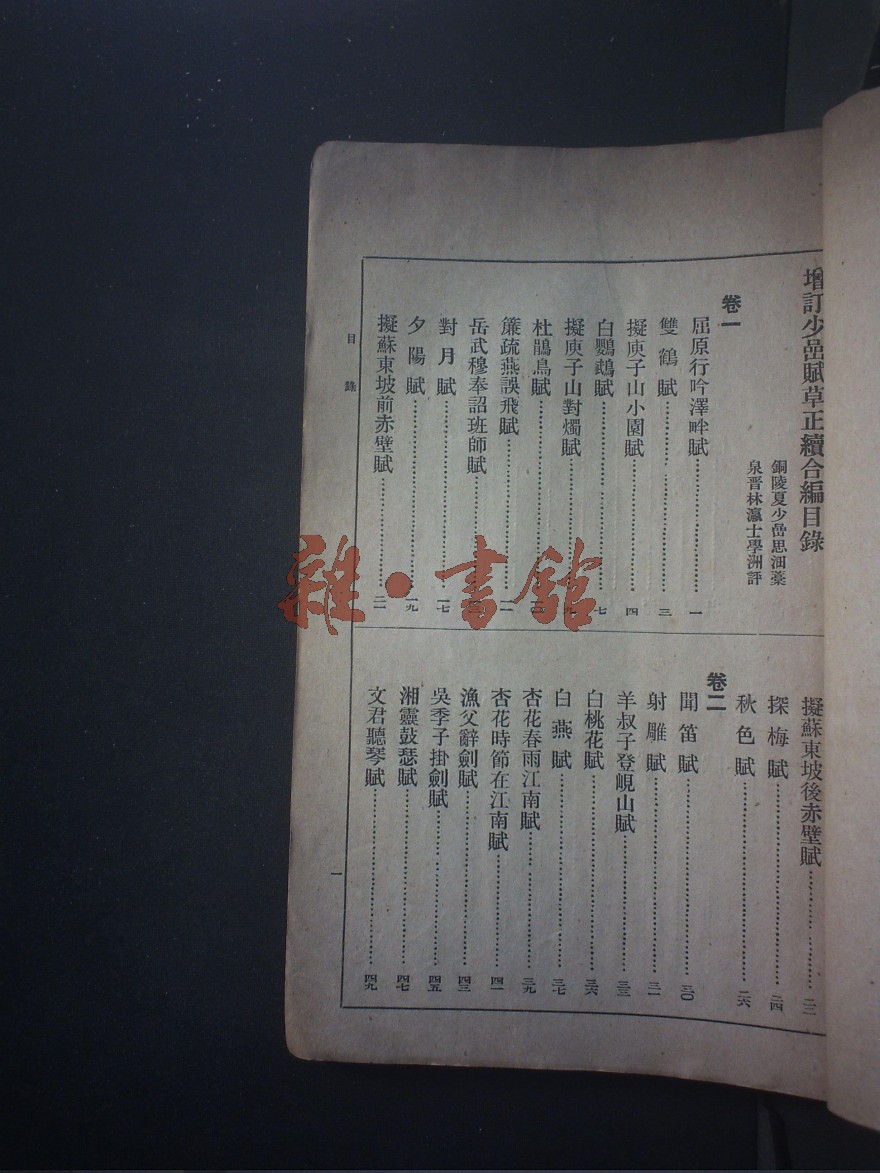 增訂少嵒賦草正續合編目錄
銅陵夏少嵒思沺藁
泉晉林瀛士學洲評
卷一
屈原行吟澤畔賦……一
雙鶴賦……三
擬庾子山小園賦……四
白鸚鵡賦……七
擬庾子山對燭賦……九
杜鵑鳥賦……
簾疏燕誤飛賦……
岳武穆奉詔班師賦……
對月賦……一七
夕陽賦……一九
擬蘇東坡前赤壁賦……二一
擬蘇東坡後赤壁賦……二三
探梅賦……二四
秋色賦……二六
卷二
聞笛賦……三〇
射雕賦……三一
羊叔子登峴山賦……三三
白桃花賦……三六
白燕賦……三七
杏花春雨江南賦……三九
杏花時節在江南賦……四一
漁父辭劍賦……四三
吳季子掛劍賦……四五
湘靈鼓瑟賦……四七
文君聽琴賦……四九
目錄
一
雜·書館